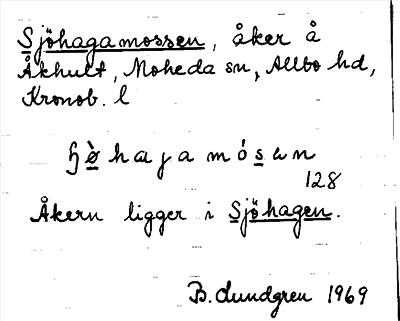 Sjöhagamossen, åker å
Åkhult, Moheda sn, Allbo hd,
Kronob. l
ɧø̀hagamósɘn
128
Åkern ligger i Sjöhagen.
B. Lundgren 1969